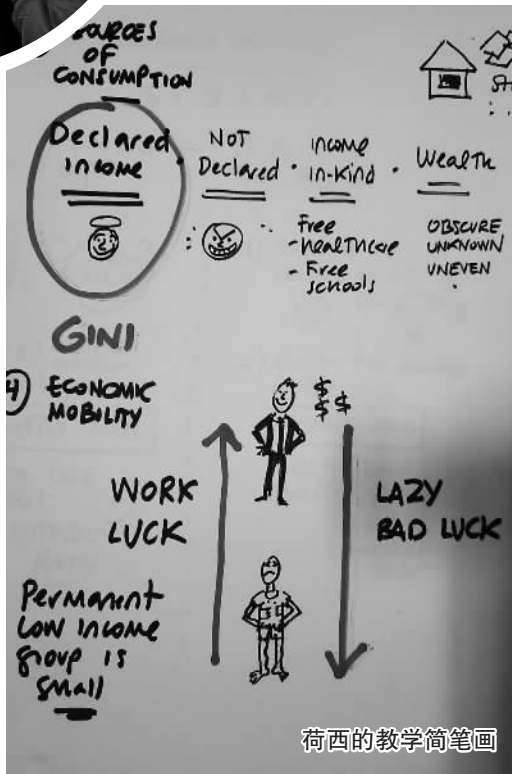 SOURCES
OF
CONSUMPTION
Declared
income
NOT
Declared
income
in-kind
Wealth
Free
- healthcare
- Free
schools
OBSCURE
UNKNOWN
UNEVEN
GINI
4 ECONOMIC
MOBILITY
$
$ $
WORK
LUCK
LAZY
BAD LUCK
Permanent
Low income
group is
small
荷西的教学简笔画